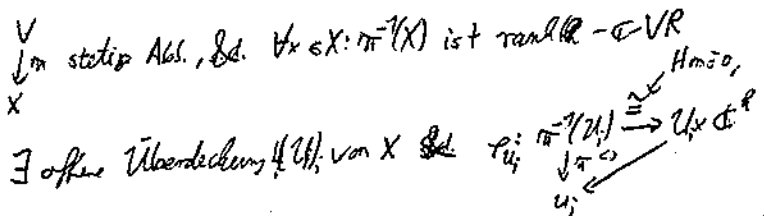 V
↓π stetige Abb., s.d. ∀x ∈ X: π⁻¹(x) ist rank k - ℂ VR
X
Homöo,
∃ offene Überdeckung {Uᵢ}ᵢ von X s.d. φ_{Uᵢ}: π⁻¹(Uᵢ) ≅→ Uᵢ × ℂᵏ
↓π ↻ ↙
Uᵢ